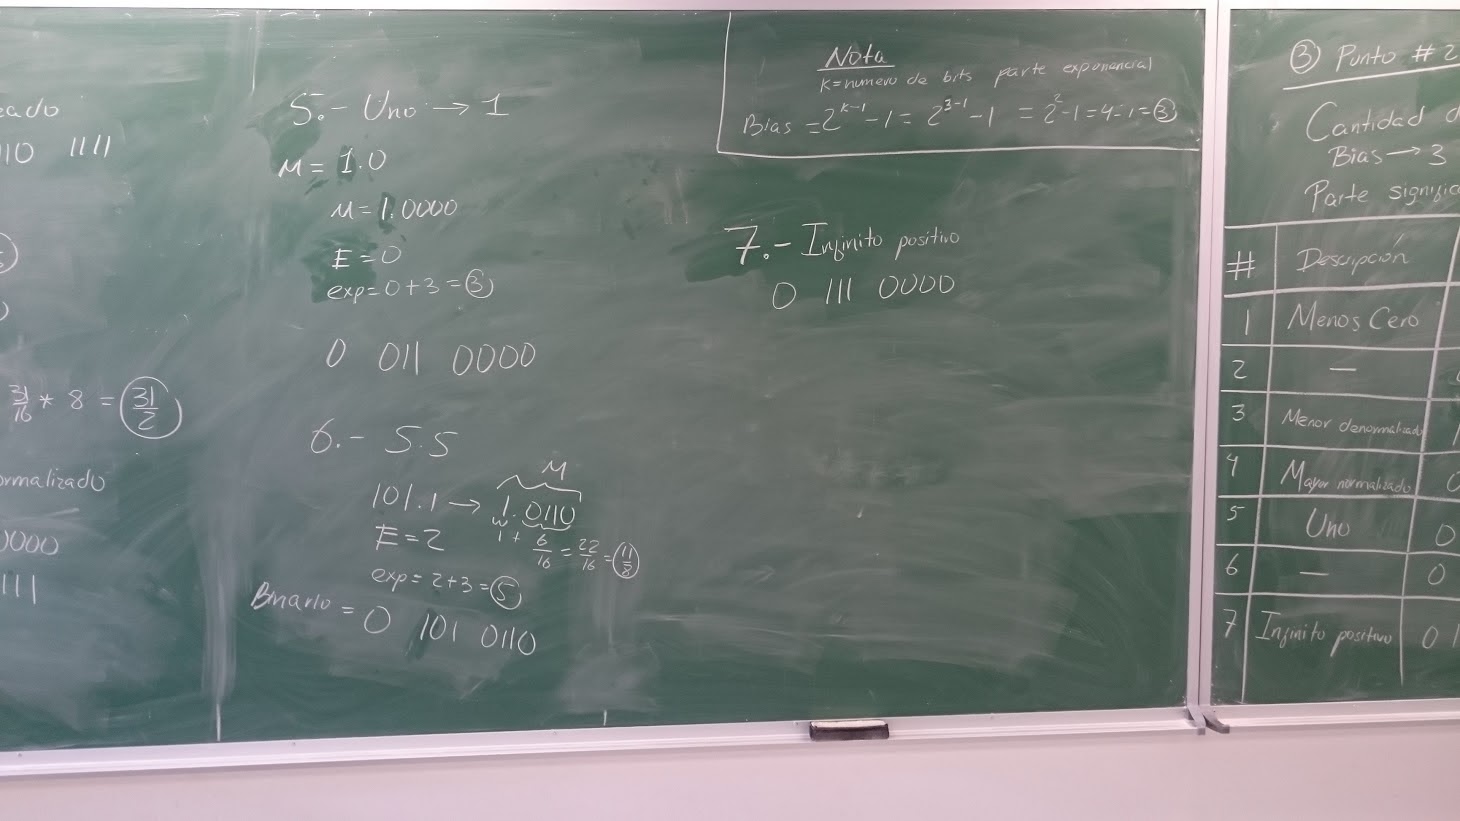 110 1111
31/16 * 8 = 31/2
0000
111
5.- Uno → 1
M = 1.0
M = 1.0000
E = 0
exp = 0 + 3 = 3
0 011 0000
6.- 5.5
M
101.1 → 1.0110
1 + 6/16 = 22/16 = 11/8
E = 2
exp = 2 + 3 = 5
Binario = 0 101 0110
Nota
K = numero de bits parte exponencial
Bias = 2^(k-1) - 1 = 2^(3-1) - 1 = 2^2 - 1 = 4 - 1 = 3
7.- Infinito positivo
0 111 0000
3 Punto #2
Cantidad
Bias → 3
Parte
# Descripción
1 Menos Cero
2 —
3 Menor denormalizado 1
4 Mayor normalizado 0
5 Uno 0
6 — 0
7 Infinito positivo 0 1